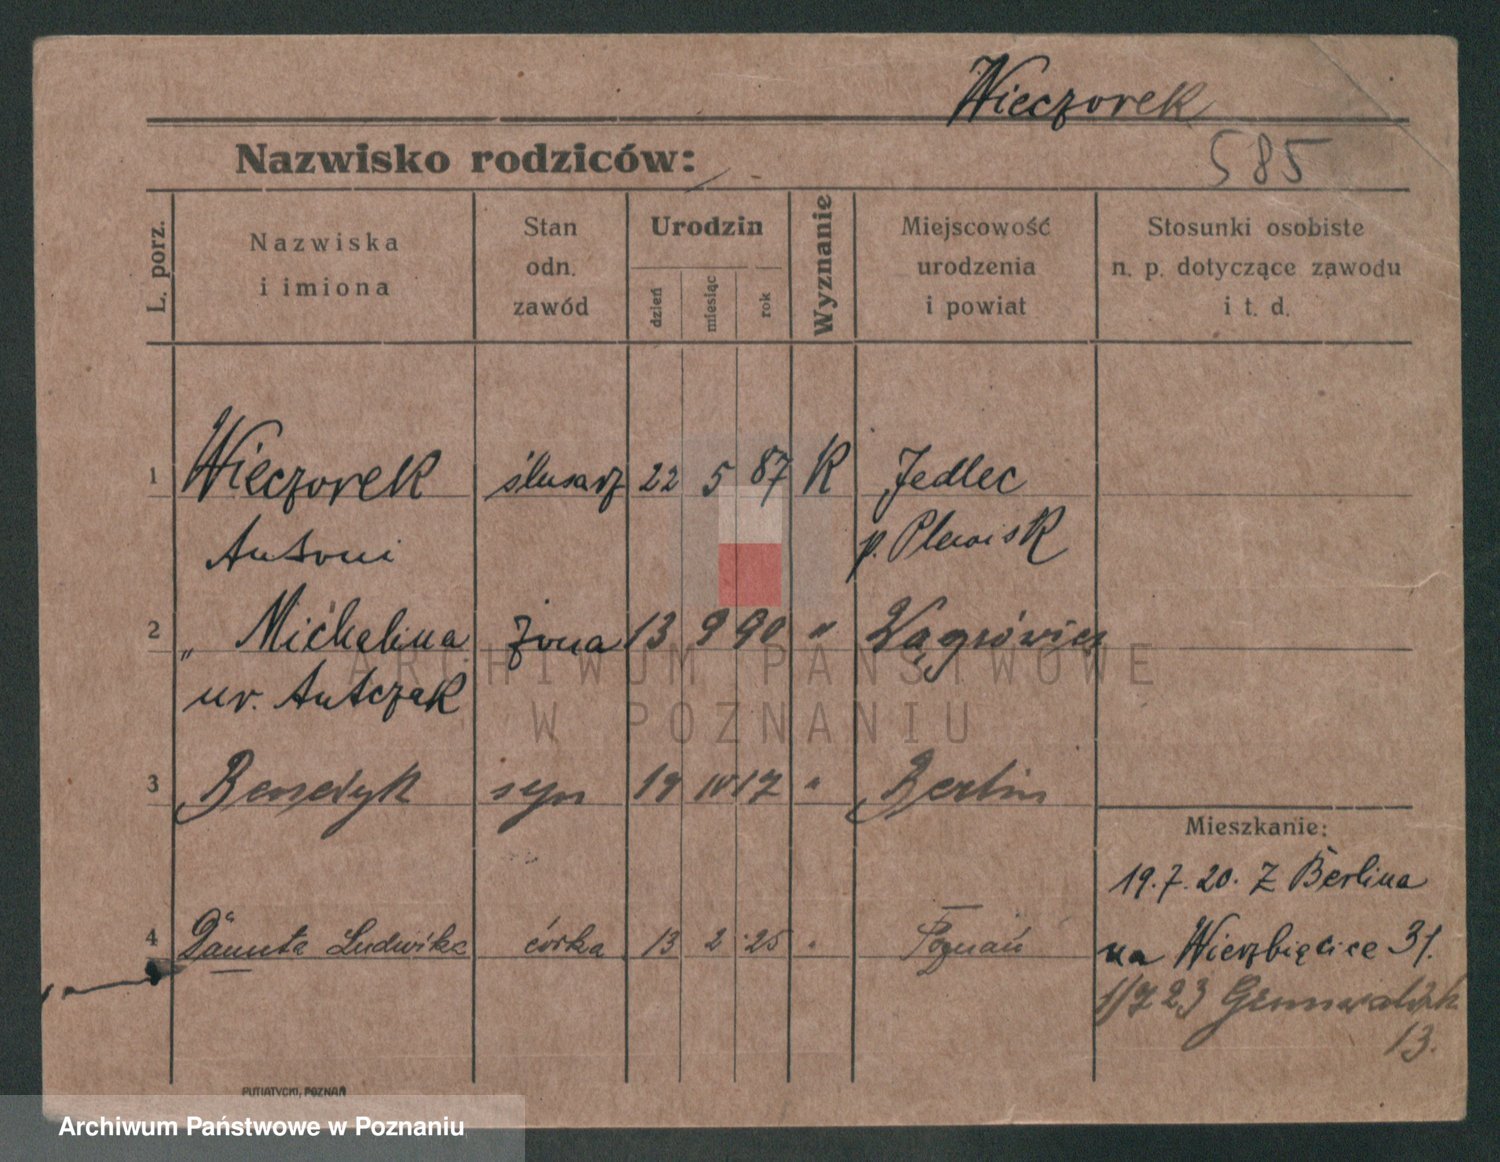 Wieczorek
Nazwisko rodziców:
585
L. porz.
Nazwiska
i imiona
Stan
odn.
zawód
Urodzin
dzień
miesiąc
rok
Wyznanie
Miejscowość
urodzenia
i powiat
Stosunki osobiste
n. p. dotyczące zawodu
i t. d.
1 Wieczorek ślusarz 22 5 87 K Jedlec
Antoni p. Plewisk
2 „ Michalina żona 13 9 90 „ Wągrówiec
ur. Antczak
3 Benedyk syn 19 IV 17 „ Berlin
Mieszkanie:
19.7.20. Z Berlina
4 Danuta Ludwika córka 13 2 25 „ Poznań
na Wierzbięcice 31.
1/7 23 Grunwaldzk.
13.
PUTIATYCKI, POZNAŃ
ARCHIWUM PAŃSTWOWE
W POZNANIU
Archiwum Państwowe w Poznaniu